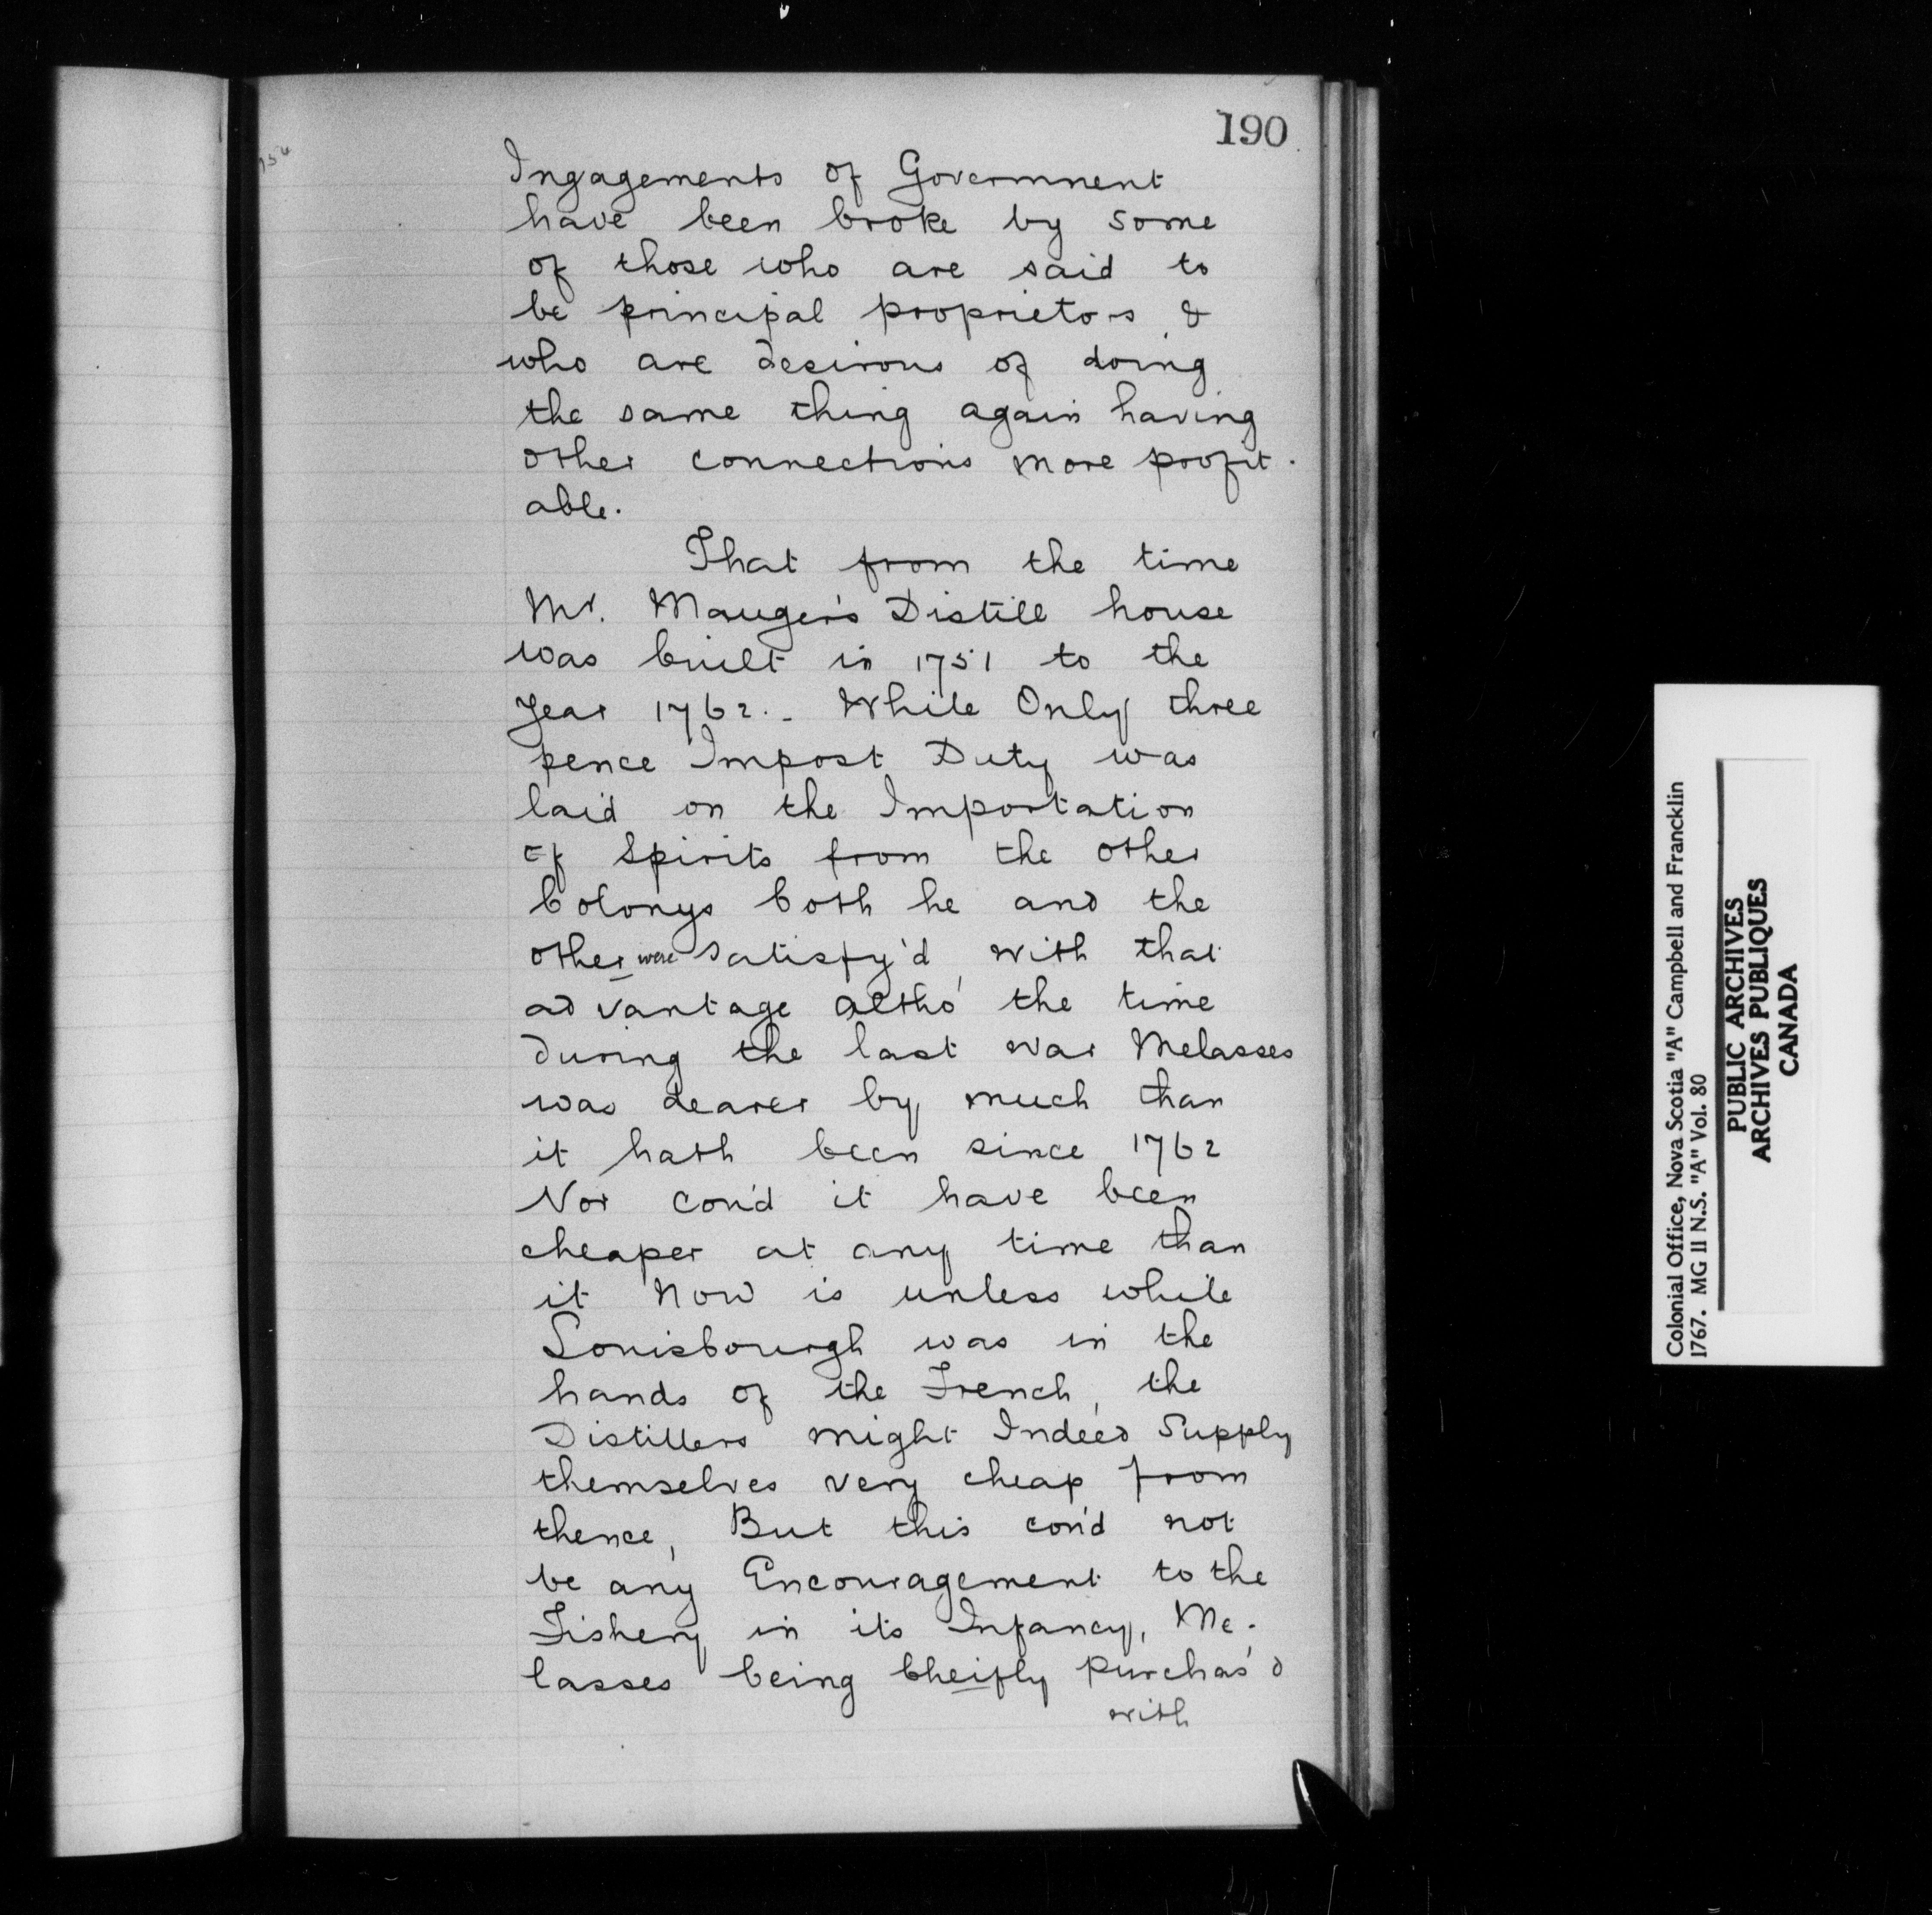 190
Ingagements of Government
have been broke by some
of those who are said to
be principal proprietors &
who are desirous of doing
the same thing again having
other connections more profit-
able.
That from the time
Mr. Mauger's Distill house
was built in 1751 to the
year 1762.- While Only three
pence Impost Duty was
laid on the Importation
of Spirits from the other
Colonys both he and the
other were satisfy'd with that
advantage altho' the time
during the last war Melasses
was dearer by much than
it hath been since 1762
Nor cou'd it have been
cheaper at any time than
it Now is unless while
Louisbourgh was in the
hands of the French, the
Distillers might Indeed Supply
themselves very cheap from
thence, But this cou'd not
be any Encouragement to the
Fishery in its Infancy, Me-
lasses being Cheifly purchas'd
with
Colonial Office, Nova Scotia "A" Campbell and Francklin
1767. MG 11 N.S. "A" Vol. 80
PUBLIC ARCHIVES
ARCHIVES PUBLIQUES
CANADA